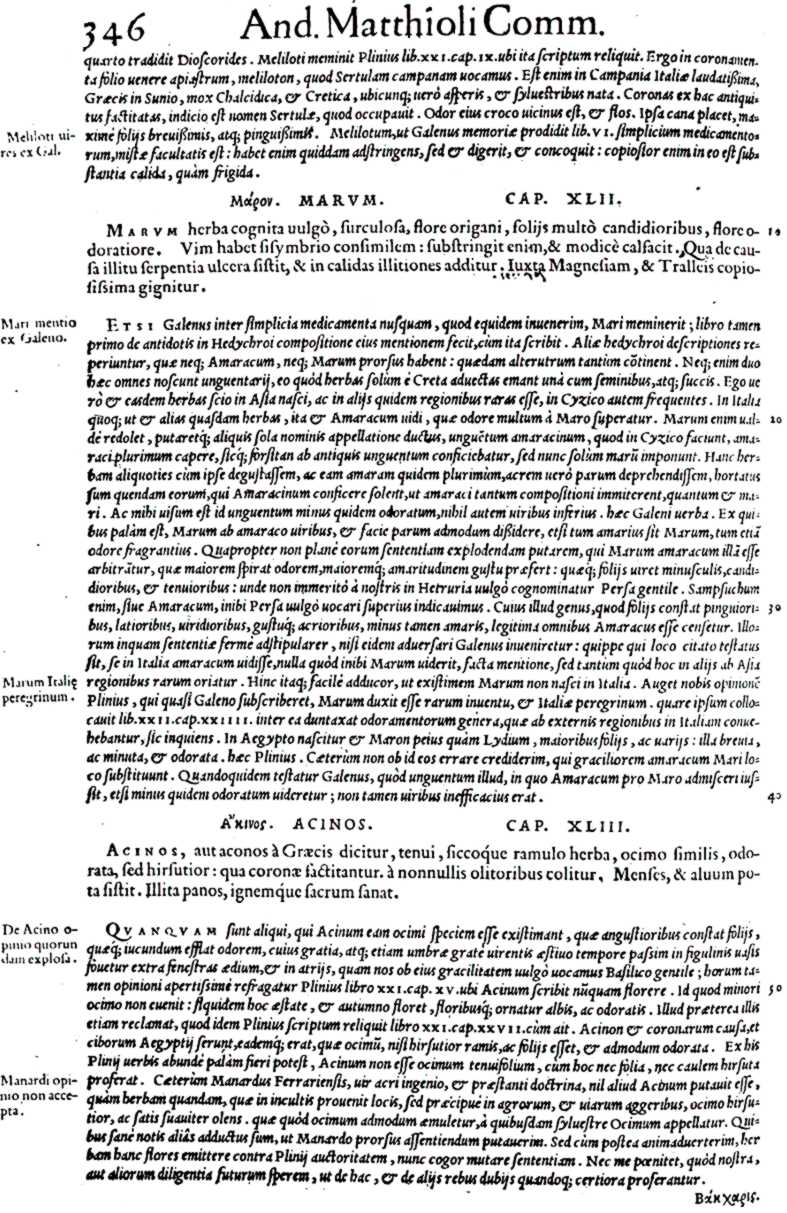 346 And. Matthioli Comm.
quarto tradidit Dioscorides. Meliloti meminit Plinius lib.XXI.cap.IX.ubi ita scriptum reliquit. Ergo in coronamen-
ta folio uenere apiastrum, meliloton, quod Sertulam campanam uocamus. Est enim in Campania Italiæ laudatißima,
Græcis in Sunio, mox Chalcidica, & Cretica, ubicunq; uerò asperis, & syluestribus nata. Coronas ex hac antiqui-
tus factitatas, indicio est nomen Sertulæ, quod occupauit. Odor eius croco uicinus est, & flos. Ipsa cana placet, ma-
Meliloti ui-
res ex Gal.
ximè folijs breuißimis, atq; pinguißimis. Melilotum, ut Galenus memoriæ prodidit lib.VI. simplicium medicamento-
rum, mistæ facultatis est: habet enim quiddam adstringens, sed & digerit, & concoquit: copiosior enim in eo est sub-
stantia calida, quàm frigida.
Μάρον. MARVM. CAP. XLII.
MARVM herba cognita uulgò, surculosa, flore origani, folijs multò candidioribus, flore o- 10
doratiore. Vim habet sisymbrio consimilem: substringit enim, & modicè calfacit. Qua de cau-
sa illitu serpentia ulcera sistit, & in calidas illitiones additur. Iuxta Magnesiam, & Tralleis copio-
sissima gignitur.
Mari mentio
ex Galeno.
ETSI Galenus inter simplicia medicamenta nusquam, quod equidem inuenerim, Mari meminerit; libro tamen
primo de antidotis in Hedychroi compositione eius mentionem fecit, cùm ita scribit. Aliæ hedychroi descriptiones re-
periuntur, quæ neq; Amaracum, neq; Marum prorsus habent: quædam alterutrum tantùm cōtinent. Neq; enim duo
hæc omnes noscunt unguentarij, eo quòd herbas solùm è Creta aduectas emant unà cum seminibus, atq; succis. Ego ue
rò & easdem herbas scio in Asia nasci, ac in alijs quidem regionibus raras esse, in Cyzico autem frequentes. In Italia
quoq; ut & alias quasdam herbas, ita & Amaracum uidi, quæ odore multum à Maro superatur. Marum enim ual- 20
dè redolet, putaretq; aliquis sola nominis appellatione ductus, unguētum amaracinum, quod in Cyzico faciunt, ama-
raci plurimum capere, sicq; forsitan ab antiquis unguentum conficiebatur, sed nunc solùm marū imponunt. Hanc her-
bam aliquoties cùm ipse degustassem, ac eam amaram quidem plurimùm, acrem uerò parum deprehendissem, hortatus
sum quendam eorum, qui Amaracinum conficere solent, ut amaraci tantum compositioni immiterent, quantum & ma-
ri. Ac mihi uisum est id unguentum minus quidem odoratum, nihil autem uiribus inferius. hæc Galeni uerba. Ex qui-
bus palàm est, Marum ab amaraco uiribus, & facie parum admodum dißidere, etsi tum amarius sit Marum, tum etiā
odore fragrantius. Quapropter non planè eorum sententiam explodendam putarem, qui Marum amaracum illā esse
arbitrātur, quæ maiorem spirat odorem, maioremq; amaritudinem gustu præfert: quæq; folijs uiret minusculis, candi-
dioribus, & tenuioribus: unde non immeritò à nostris in Hetruria uulgò cognominatur Persa gentile. Sampsuchum
enim, siue Amaracum, inibi Persa uulgò uocari superius indicauimus. Cuius illud genus, quod folijs constat pinguiori- 30
bus, latioribus, uiridioribus, gustuq; acrioribus, minus tamen amaris, legitima omnibus Amaracus esse censetur. Illo-
rum inquam sententiæ fermè adstipularer, nisi eidem aduersari Galenus inueniretur: quippe qui loco citato testatus
sit, se in Italia amaracum uidisse, nulla quòd inibi Marum uiderit, facta mentione, sed tantùm quòd hoc in alijs ab Asia
Marum Italię
peregrinum.
regionibus rarum oriatur. Hinc itaq; facilè adducor, ut existimem Marum non nasci in Italia. Auget nobis opinionē
Plinius, qui quasi Galeno subscriberet, Marum duxit esse rarum inuentu, & Italiæ peregrinum. quare ipsum collo-
cauit lib.XXII.cap.XXIIII. inter ea duntaxat odoramentorum genera, quæ ab externis regionibus in Italiam conue-
hebantur, sic inquiens. In Aegypto nascitur & Maron peius quàm Lydium, maioribus folijs, ac uarijs: illa breuia,
ac minuta, & odorata. hæc Plinius. Cæterùm non ob id eos errare crediderim, qui graciliorem amaracum Mari lo-
co substituunt. Quandoquidem testatur Galenus, quòd unguentum illud, in quo Amaracum pro Maro admisceri ius-
sit, etsi minus quidem odoratum uideretur; non tamen uiribus inefficacius erat. 40
Ἄκινος. ACINOS. CAP. XLIII.
ACINOS, aut aconos à Græcis dicitur, tenui, siccoque ramulo herba, ocimo similis, odo-
rata, sed hirsutior: qua coronæ factitantur. à nonnullis olitoribus colitur. Menses, & aluum po-
ta sistit. Illita panos, ignemque sacrum sanat.
De Acino o-
pinio quorun
dam explosa.
QVANQVAM sunt aliqui, qui Acinum eam ocimi speciem esse existimant, quæ angustioribus constat folijs,
quæq; iucundum efflat odorem, cuius gratia, atq; etiam umbræ gratè uirentis æstiuo tempore passim in figulinis uasis
fouetur extra fenestras ædium, & in atrijs, quam nos ob eius gracilitatem uulgò uocamus Basilico gentile; horum ta-
men opinioni apertissimè refragatur Plinius libro XXI.cap.XV.ubi Acinum scribit nūquam florere. Id quod minori 50
ocimo non euenit: siquidem hoc æstate, & autumno floret, floribusq; ornatur albis, ac odoratis. Illud præterea illis
etiam reclamat, quod idem Plinius scriptum reliquit libro XXI.cap.XXVII.cùm ait. Acinon & coronarum causa, et
ciborum Aegyptij serunt, eademq; erat, quæ ocimū, nisi hirsutior ramis, ac folijs esset, & admodum odorata. Ex his
Plinij uerbis abundè palàm fieri potest, Acinum non esse ocimum tenuifolium, cùm hoc nec folia, nec caulem hirsuta
Manardi opi-
nio non acce-
pta.
proferat. Cæterùm Manardus Ferrariensis, uir acri ingenio, & præstanti doctrina, nil aliud Acinum putauit esse,
quàm herbam quandam, quæ in incultis prouenit locis, sed præcipuè in agrorum, & uiarum aggeribus, ocimo hirsu-
tior, ac satis suauiter olens. quæ quòd ocimum admodum æmuletur, à quibusdam syluestre Ocimum appellatur. Qui-
bus sanè notis aliàs adductus sum, ut Manardo prorsus assentiendum putauerim. Sed cùm postea animaduerterim, her
bam hanc flores emittere contra Plinij auctoritatem, nunc cogor mutare sententiam. Nec me pœnitet, quòd nostra,
aut aliorum diligentia futurum sperem, ut de hac, & de alijs rebus dubijs quandoq; certiora proferantur.
Βάκχαρις.